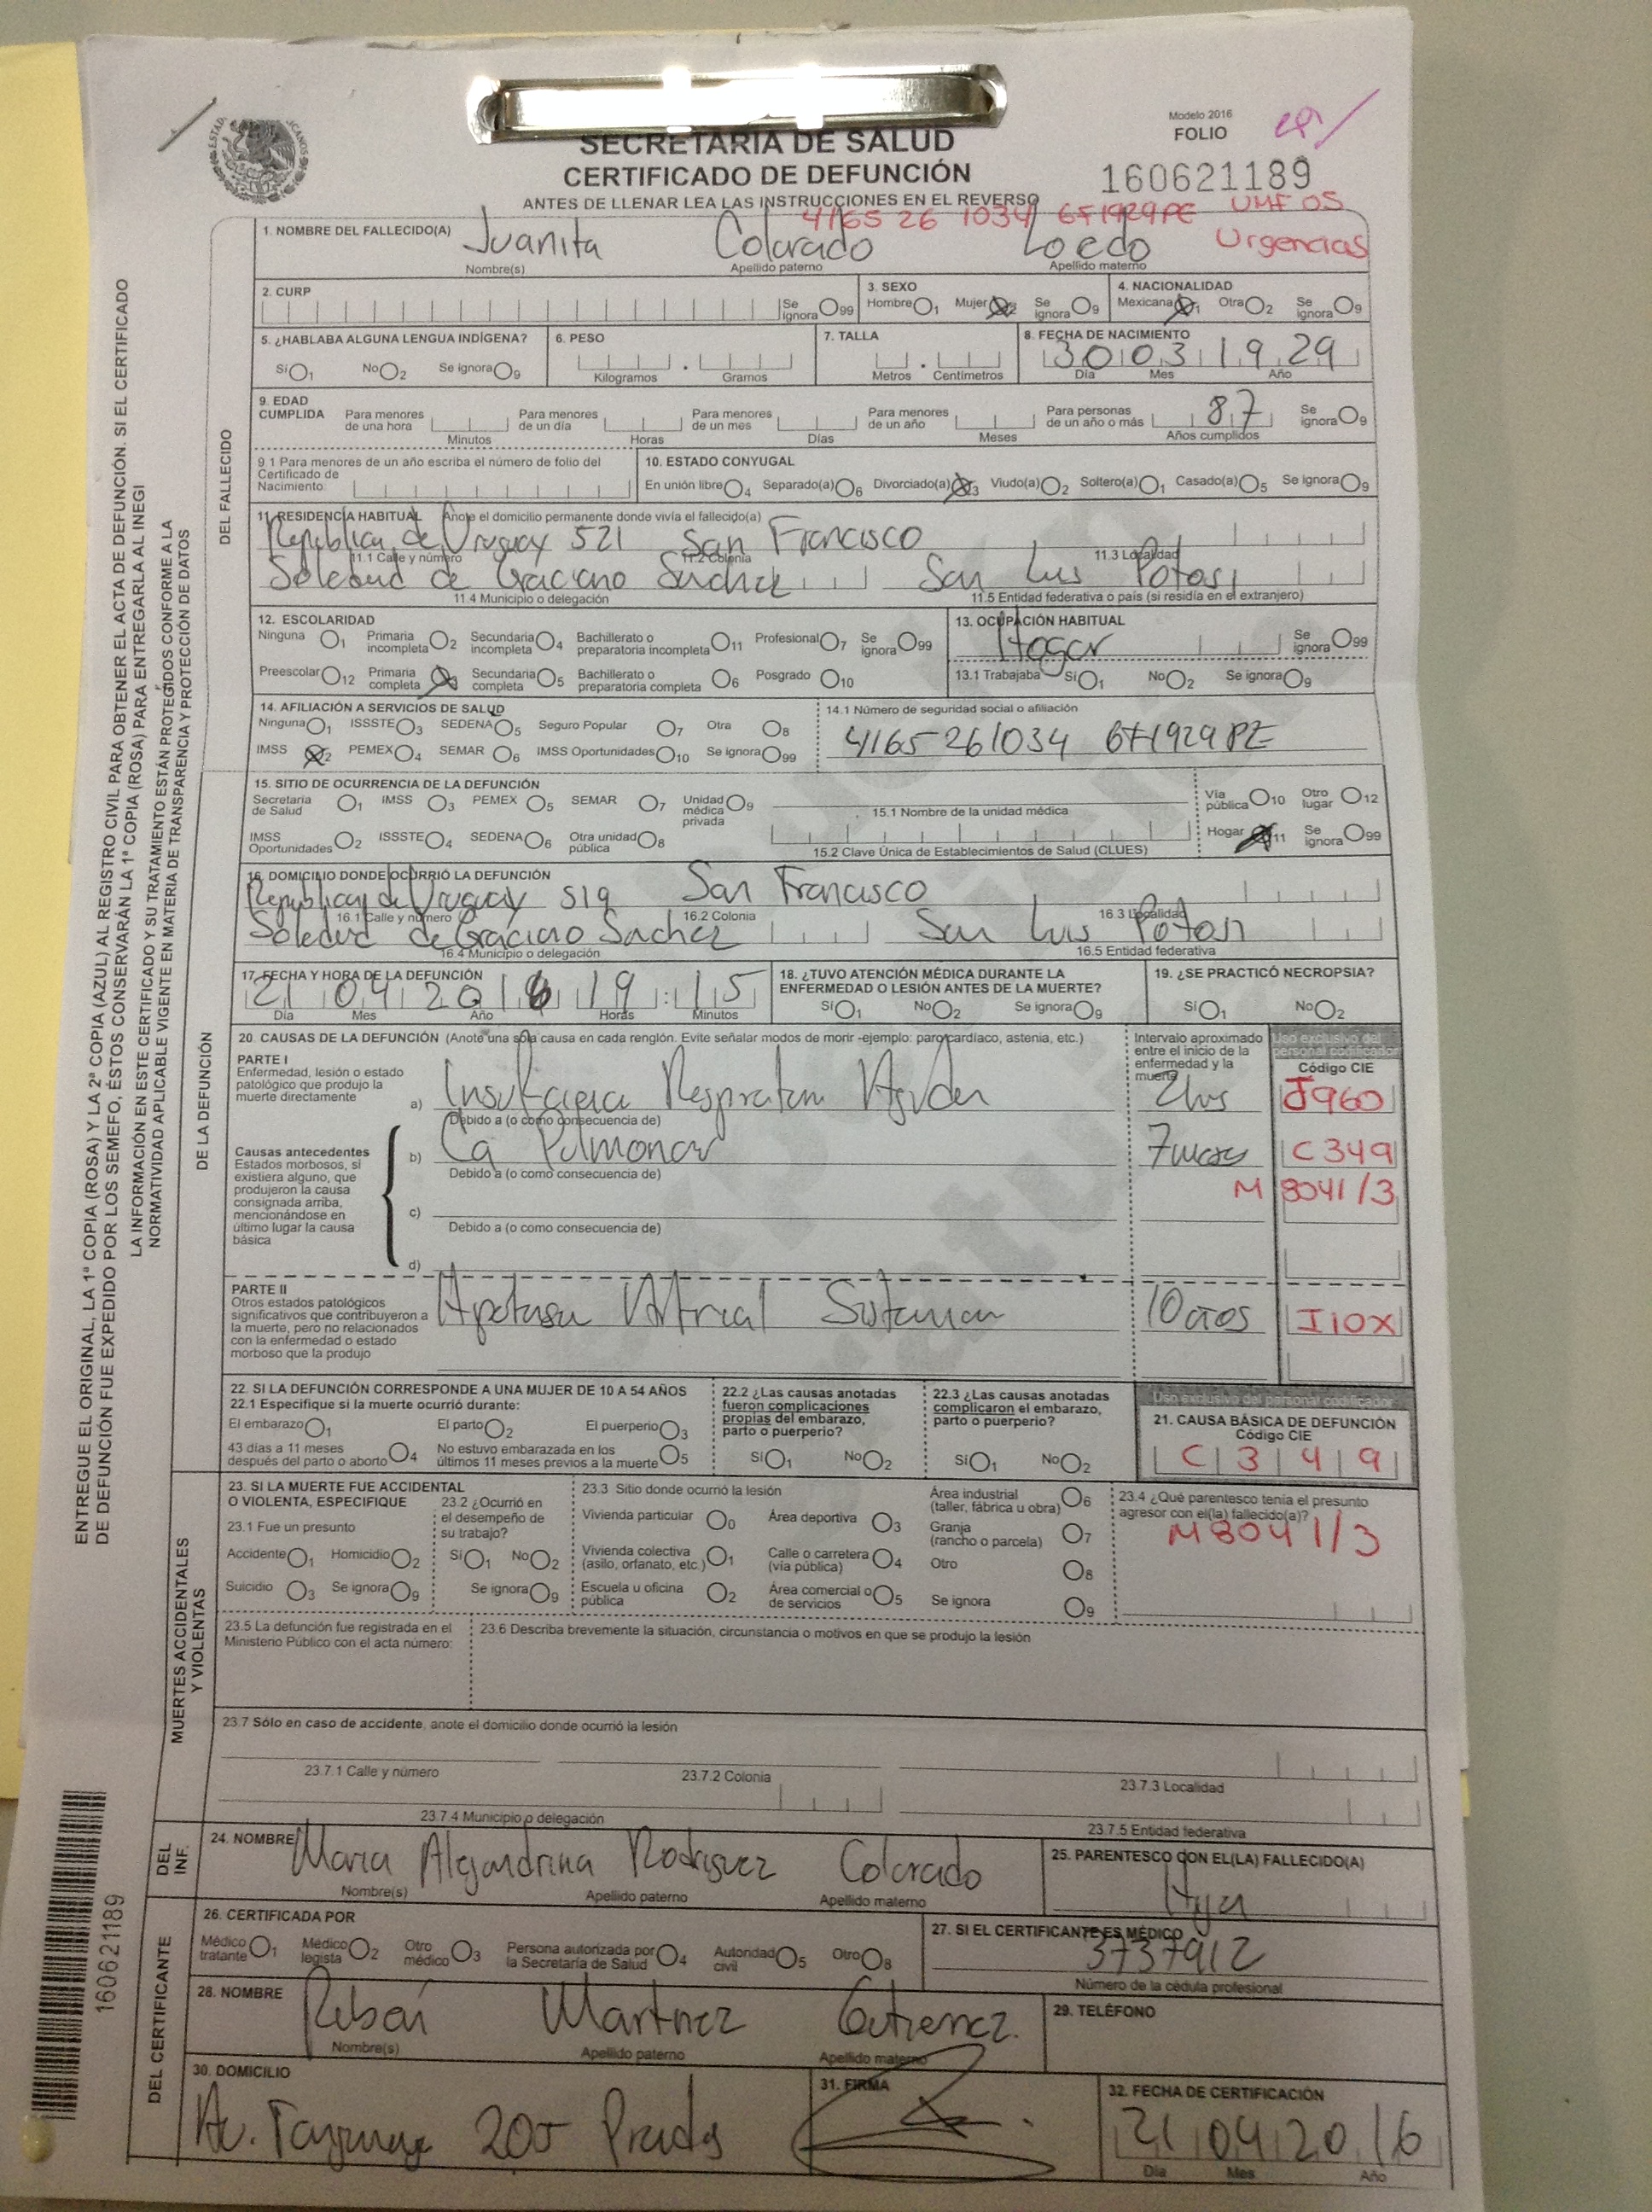 Modelo 2016
SECRETARÍA DE SALUD
FOLIO
CERTIFICADO DE DEFUNCIÓN
160621189
ANTES DE LLENAR LEA LAS INSTRUCCIONES EN EL REVERSO
4165 26 1034 6F1929PE UMF 05
Urgencias
1. NOMBRE DEL FALLECIDO(A) Juanita Colorado Loedo
Nombre(s) Apellido paterno Apellido materno
2. CURP Se ignora 99 3. SEXO Hombre 1 Mujer 2 Se ignora 9 4. NACIONALIDAD Mexicana 1 Otra 2 Se ignora 9
5. ¿HABLABA ALGUNA LENGUA INDÍGENA? Sí 1 No 2 Se ignora 9
6. PESO Kilogramos . Gramos
7. TALLA Metros . Centímetros
8. FECHA DE NACIMIENTO 30 03 1929
Día Mes Año
9. EDAD CUMPLIDA
Para menores de una hora Minutos
Para menores de un día Horas
Para menores de un mes Días
Para menores de un año Meses
Para personas de un año o más 87 Años cumplidos
Se ignora 9
9.1 Para menores de un año escriba el número de folio del Certificado de Nacimiento:
10. ESTADO CONYUGAL
En unión libre 4 Separado(a) 6 Divorciado(a) 3 Viudo(a) 2 Soltero(a) 1 Casado(a) 5 Se ignora 9
11. RESIDENCIA HABITUAL Anote el domicilio permanente donde vivía el fallecido(a)
Republica de Uruguay 521 San Francisco
11.1 Calle y número 11.2 Colonia 11.3 Localidad
Soledad de Graciano Sachez San Luis Potosi
11.4 Municipio o delegación 11.5 Entidad federativa o país (si residía en el extranjero)
12. ESCOLARIDAD
Ninguna 1 Primaria incompleta 2 Secundaria incompleta 4 Bachillerato o preparatoria incompleta 11 Profesional 7 Se ignora 99
Preescolar 12 Primaria completa 3 Secundaria completa 5 Bachillerato o preparatoria completa 6 Posgrado 10
13. OCUPACIÓN HABITUAL Hogar Se ignora 99
13.1 Trabajaba Sí 1 No 2 Se ignora 9
14. AFILIACIÓN A SERVICIOS DE SALUD
Ninguna 1 ISSSTE 3 SEDENA 5 Seguro Popular 7 Otra 8
IMSS 2 PEMEX 4 SEMAR 6 IMSS Oportunidades 10 Se ignora 99
14.1 Número de seguridad social o afiliación
4165261034 6F1929PE
15. SITIO DE OCURRENCIA DE LA DEFUNCIÓN
Secretaría de Salud 1 IMSS 3 PEMEX 5 SEMAR 7 Unidad médica privada 9
IMSS Oportunidades 2 ISSSTE 4 SEDENA 6 Otra unidad pública 8
15.1 Nombre de la unidad médica
15.2 Clave Única de Establecimientos de Salud (CLUES)
Vía pública 10 Otro lugar 12
Hogar 11 Se ignora 99
16. DOMICILIO DONDE OCURRIÓ LA DEFUNCIÓN
Republica de Uruguay 519 San Francisco
16.1 Calle y número 16.2 Colonia 16.3 Localidad
Soledad de Graciano Sachez San Luis Potosi
16.4 Municipio o delegación 16.5 Entidad federativa
17. FECHA Y HORA DE LA DEFUNCIÓN
21 04 2016 19 : 15
Día Mes Año Horas Minutos
18. ¿TUVO ATENCIÓN MÉDICA DURANTE LA ENFERMEDAD O LESIÓN ANTES DE LA MUERTE?
Sí 1 No 2 Se ignora 9
19. ¿SE PRACTICÓ NECROPSIA?
Sí 1 No 2
20. CAUSAS DE LA DEFUNCIÓN (Anote una sola causa en cada renglón. Evite señalar modos de morir -ejemplo: paro cardíaco, astenia, etc.)
Intervalo aproximado entre el inicio de la enfermedad y la muerte
Uso exclusivo del personal codificador
Código CIE
PARTE I
Enfermedad, lesión o estado patológico que produjo la muerte directamente
a) Insuficiencia Respiratoria Aguda 2hrs J960
Debido a (o como consecuencia de)
Causas antecedentes
Estados morbosos, si existiera alguno, que produjeron la causa consignada arriba, mencionándose en último lugar la causa básica
b) Ca Pulmonar 7 meses C349
Debido a (o como consecuencia de)
M 8041/3
c)
Debido a (o como consecuencia de)
d)
PARTE II
Otros estados patológicos significativos que contribuyeron a la muerte, pero no relacionados con la enfermedad o estado morboso que la produjo
Arterial 10 años I10X
22. SI LA DEFUNCIÓN CORRESPONDE A UNA MUJER DE 10 A 54 AÑOS
22.1 Especifique si la muerte ocurrió durante:
El embarazo 1 El parto 2 El puerperio 3
43 días a 11 meses después del parto o aborto 4 No estuvo embarazada en los últimos 11 meses previos a la muerte 5
22.2 ¿Las causas anotadas fueron complicaciones propias del embarazo, parto o puerperio?
Sí 1 No 2
22.3 ¿Las causas anotadas complicaron el embarazo, parto o puerperio?
Sí 1 No 2
Uso exclusivo del personal codificador
21. CAUSA BÁSICA DE DEFUNCIÓN
Código CIE
C 3 4 9
23. SI LA MUERTE FUE ACCIDENTAL O VIOLENTA, ESPECIFIQUE
23.1 Fue un presunto
Accidente 1 Homicidio 2
Suicidio 3 Se ignora 9
23.2 ¿Ocurrió en el desempeño de su trabajo?
Sí 1 No 2
Se ignora 9
23.3 Sitio donde ocurrió la lesión
Vivienda particular 0 Área deportiva 3
Vivienda colectiva (asilo, orfanato, etc.) 1 Calle o carretera (vía pública) 4
Escuela u oficina pública 2 Área comercial o de servicios 5
Área industrial (taller, fábrica u obra) 6
Granja (rancho o parcela) 7
Otro 8
Se ignora 9
23.4 ¿Qué parentesco tenía el presunto agresor con el(la) fallecido(a)?
M8041/3
23.5 La defunción fue registrada en el Ministerio Público con el acta número:
23.6 Describa brevemente la situación, circunstancia o motivos en que se produjo la lesión
23.7 Sólo en caso de accidente, anote el domicilio donde ocurrió la lesión
23.7.1 Calle y número 23.7.2 Colonia 23.7.3 Localidad
23.7.4 Municipio o delegación 23.7.5 Entidad federativa
24. NOMBRE Maria Alejandrina Rodriguez Colorado
Nombre(s) Apellido paterno Apellido materno
25. PARENTESCO CON EL(LA) FALLECIDO(A)
Hija
26. CERTIFICADA POR
Médico tratante 1 Médico legista 2 Otro médico 3 Persona autorizada por la Secretaría de Salud 4 Autoridad civil 5 Otro 8
27. SI EL CERTIFICANTE ES MÉDICO
3737912
Número de la cédula profesional
28. NOMBRE Martinez Gutierrez
Nombre(s) Apellido paterno Apellido materno
29. TELÉFONO
30. DOMICILIO
Av. 200 Prados
31. FIRMA
32. FECHA DE CERTIFICACIÓN
21 04 2016
Día Mes Año
DEL FALLECIDO
DE LA DEFUNCIÓN
MUERTES ACCIDENTALES Y VIOLENTAS
DEL INF.
DEL CERTIFICANTE
ENTREGUE EL ORIGINAL, LA 1ª COPIA (ROSA) Y LA 2ª COPIA (AZUL) AL REGISTRO CIVIL PARA OBTENER EL ACTA DE DEFUNCIÓN. SI EL CERTIFICADO
DE DEFUNCIÓN FUE EXPEDIDO POR LOS SEMEFO, ÉSTOS CONSERVARÁN LA 1ª COPIA (ROSA) PARA ENTREGARLA AL INEGI
LA INFORMACIÓN EN ESTE CERTIFICADO Y SU TRATAMIENTO ESTÁN PROTEGIDOS CONFORME A LA
NORMATIVIDAD APLICABLE VIGENTE EN MATERIA DE TRANSPARENCIA Y PROTECCIÓN DE DATOS
160621189